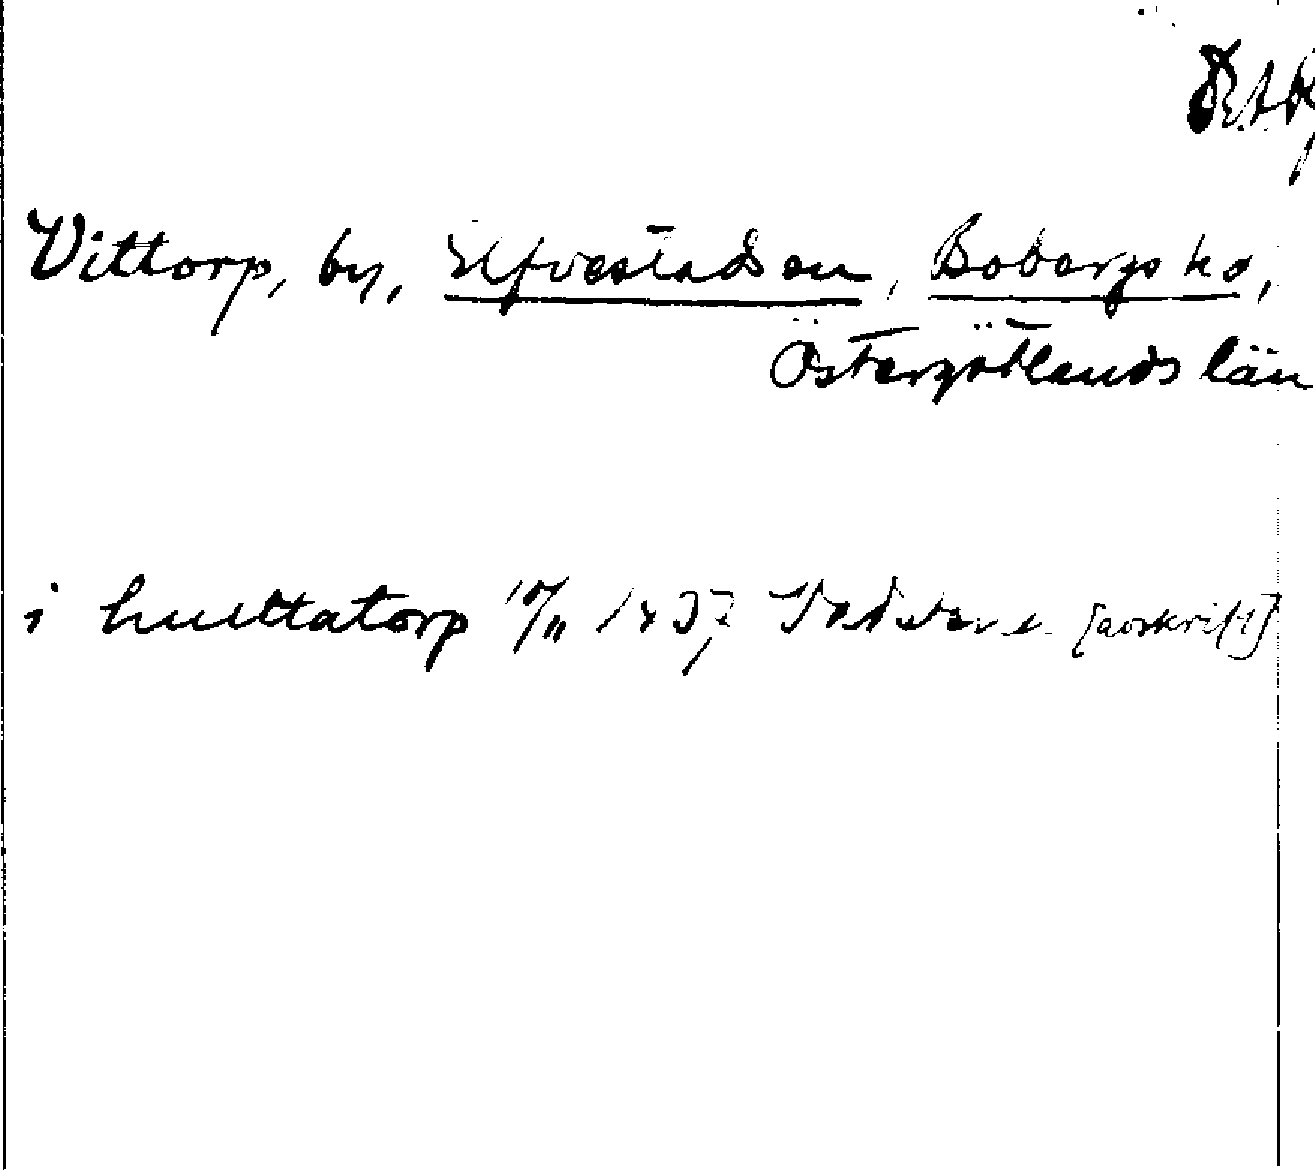 Vittorp, by, Elfvestads sn, Bobergs hd,
Östergötlands län
i huittatorp 10/11 1437 Vadstena [avskrift]